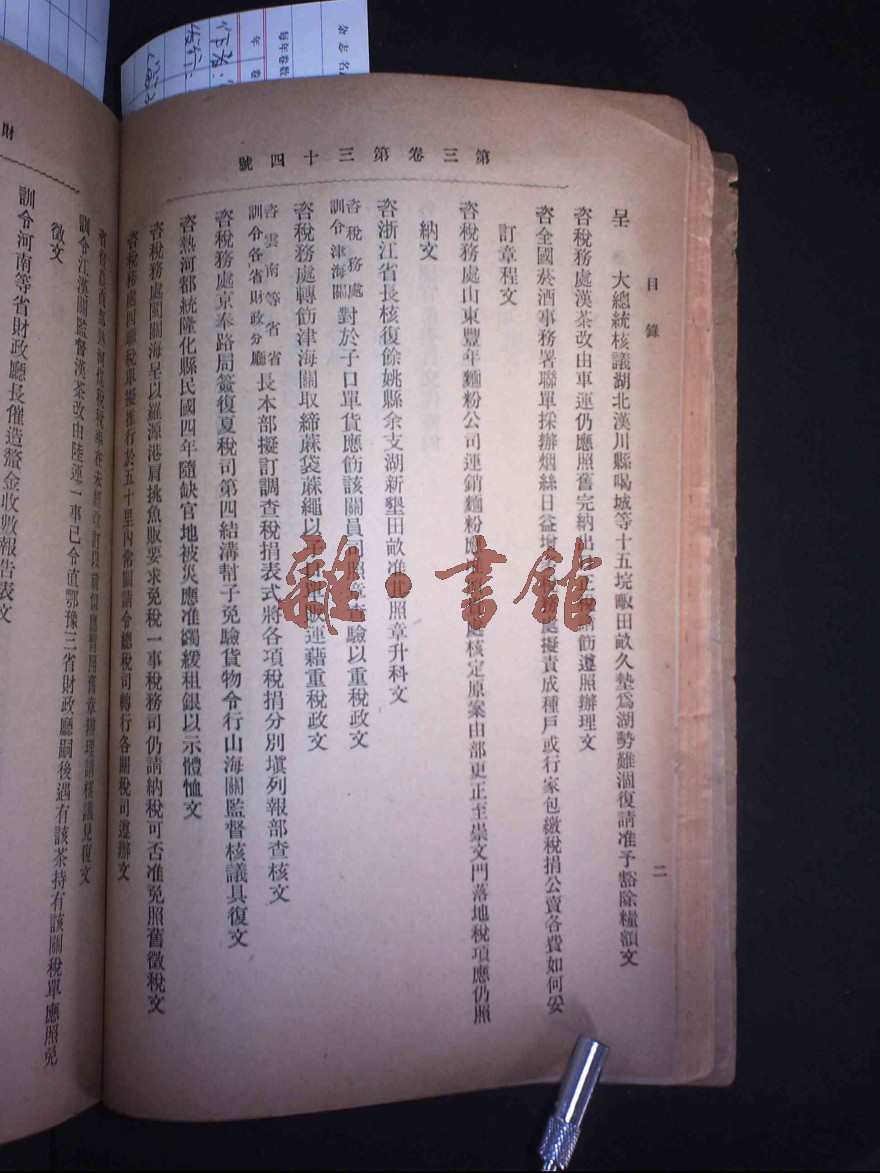 第三卷第三十四號
目錄
二
呈 大總統核議湖北漢川縣喝城等十五垸畈田畝久墊爲湖勢難涸復請准予豁除糧額文
咨稅務處漢茶改由車運仍應照舊完納出 正 飭遵照辦理文
咨全國菸酒事務署聯單採辦烟絲日益增 擬責成種戶或行家包繳稅捐公賣各費如何妥
訂章程文
咨稅務處山東豐年麵粉公司運銷麵粉應 處核定原案由部更正至崇文門落地稅項應仍照
納文
咨浙江省長核復餘姚縣余支湖新墾田畝准 照章升科文
咨稅務處
訓令津海關
對於子口單貨應飭該關員司照章查驗以重稅政文
咨稅務處轉飭津海關取締蔴袋蔴繩以子口單販運藉重稅政文
咨雲南等省省
訓令各省財政分廳
長本部擬訂調查稅捐表式將各項稅捐分別塡列報部查核文
咨稅務處京奉路局簽復夏稅司第四結溝幫子免驗貨物令行山海關監督核議具復文
咨熱河都統隆化縣民國四年隨缺官地被災應准蠲緩租銀以示體恤文
咨稅務處閩關海呈以羅源港肩挑魚販要求免稅一事稅務司仍請納稅可否准免照舊徵稅文
咨稅務處四聯稅單擬推行於五十里內常關請令總稅司轉行各關稅司遵辦文
咨復農商部熱河煤稅 在未經改訂以前似應暫用舊章辦理請核議見復文
訓令江漢關監督漢茶改由陸運一事已令直鄂豫三省財政廳嗣後遇有該茶持有該關稅單應照免
徵文
訓令河南等省財政廳長催造釐金收數報告表文
財
雜·書館
杂志名
每年卷数
年 卷